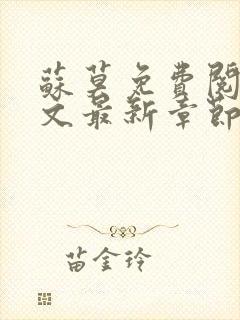 蘇莫免費閱
文最新章節
苗金玲